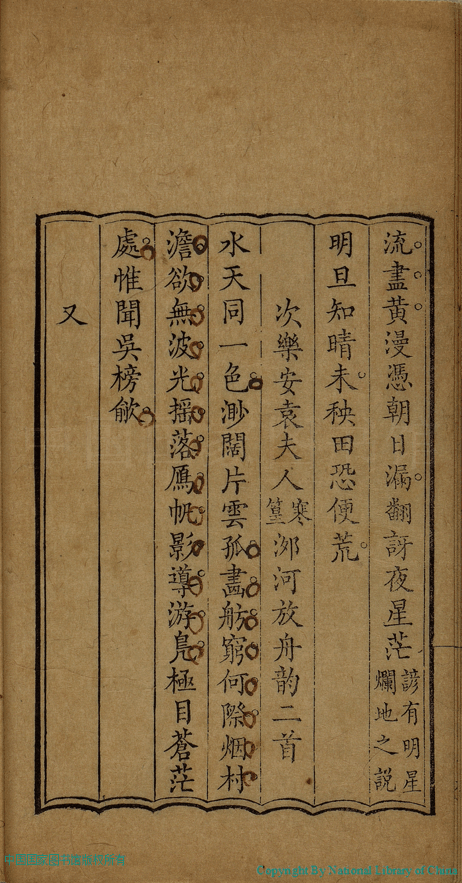 流盡黃漫憑朝日漏翻訝夜星茫諺有明星爛地之說
明旦知晴未秧田恐便荒
次樂安袁夫人寒篁泖河放舟韵二首
水天同一色渺闊片雲孤畵舫窮何際烟村
澹欲無波光搖落鴈帆影導游鳧極目蒼茫
處惟聞吳榜歈
又
Copyright By National Library of China